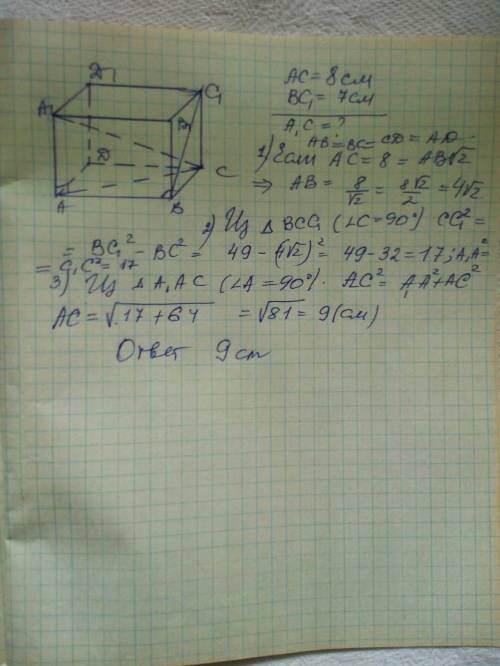 D₁
C₁
A₁
B₁
D
C
A
B
AC = 8 см
BC₁ = 7 см
A₁C = ?
AB = BC = CD = AD
1) Если AC = 8 = AB√2
⇒ AB = 8/√2 = 8√2/2 = 4√2
2) Из △ BCC₁ (∠C = 90°) CC₁² =
= BC₁² - BC² = 49 - (4√2)² = 49 - 32 = 17; A₁A² =
= C₁C² = 17
3) Из △ A₁AC (∠A = 90°). A₁C² = A₁A² + AC²
AC = √17 + 64 = √81 = 9 (см)
Ответ 9 cm